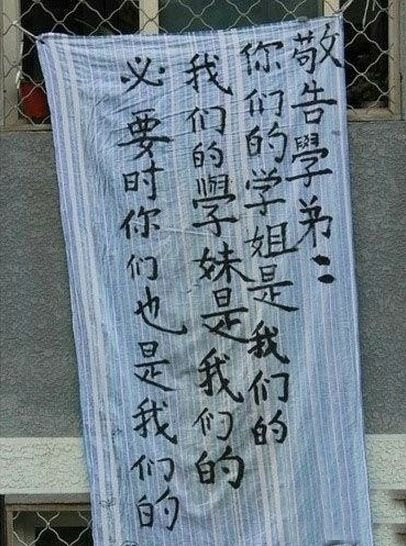 敬告學弟：
你们的学姐是我们的
我们的學妹是我们的
必要时你们也是我们的